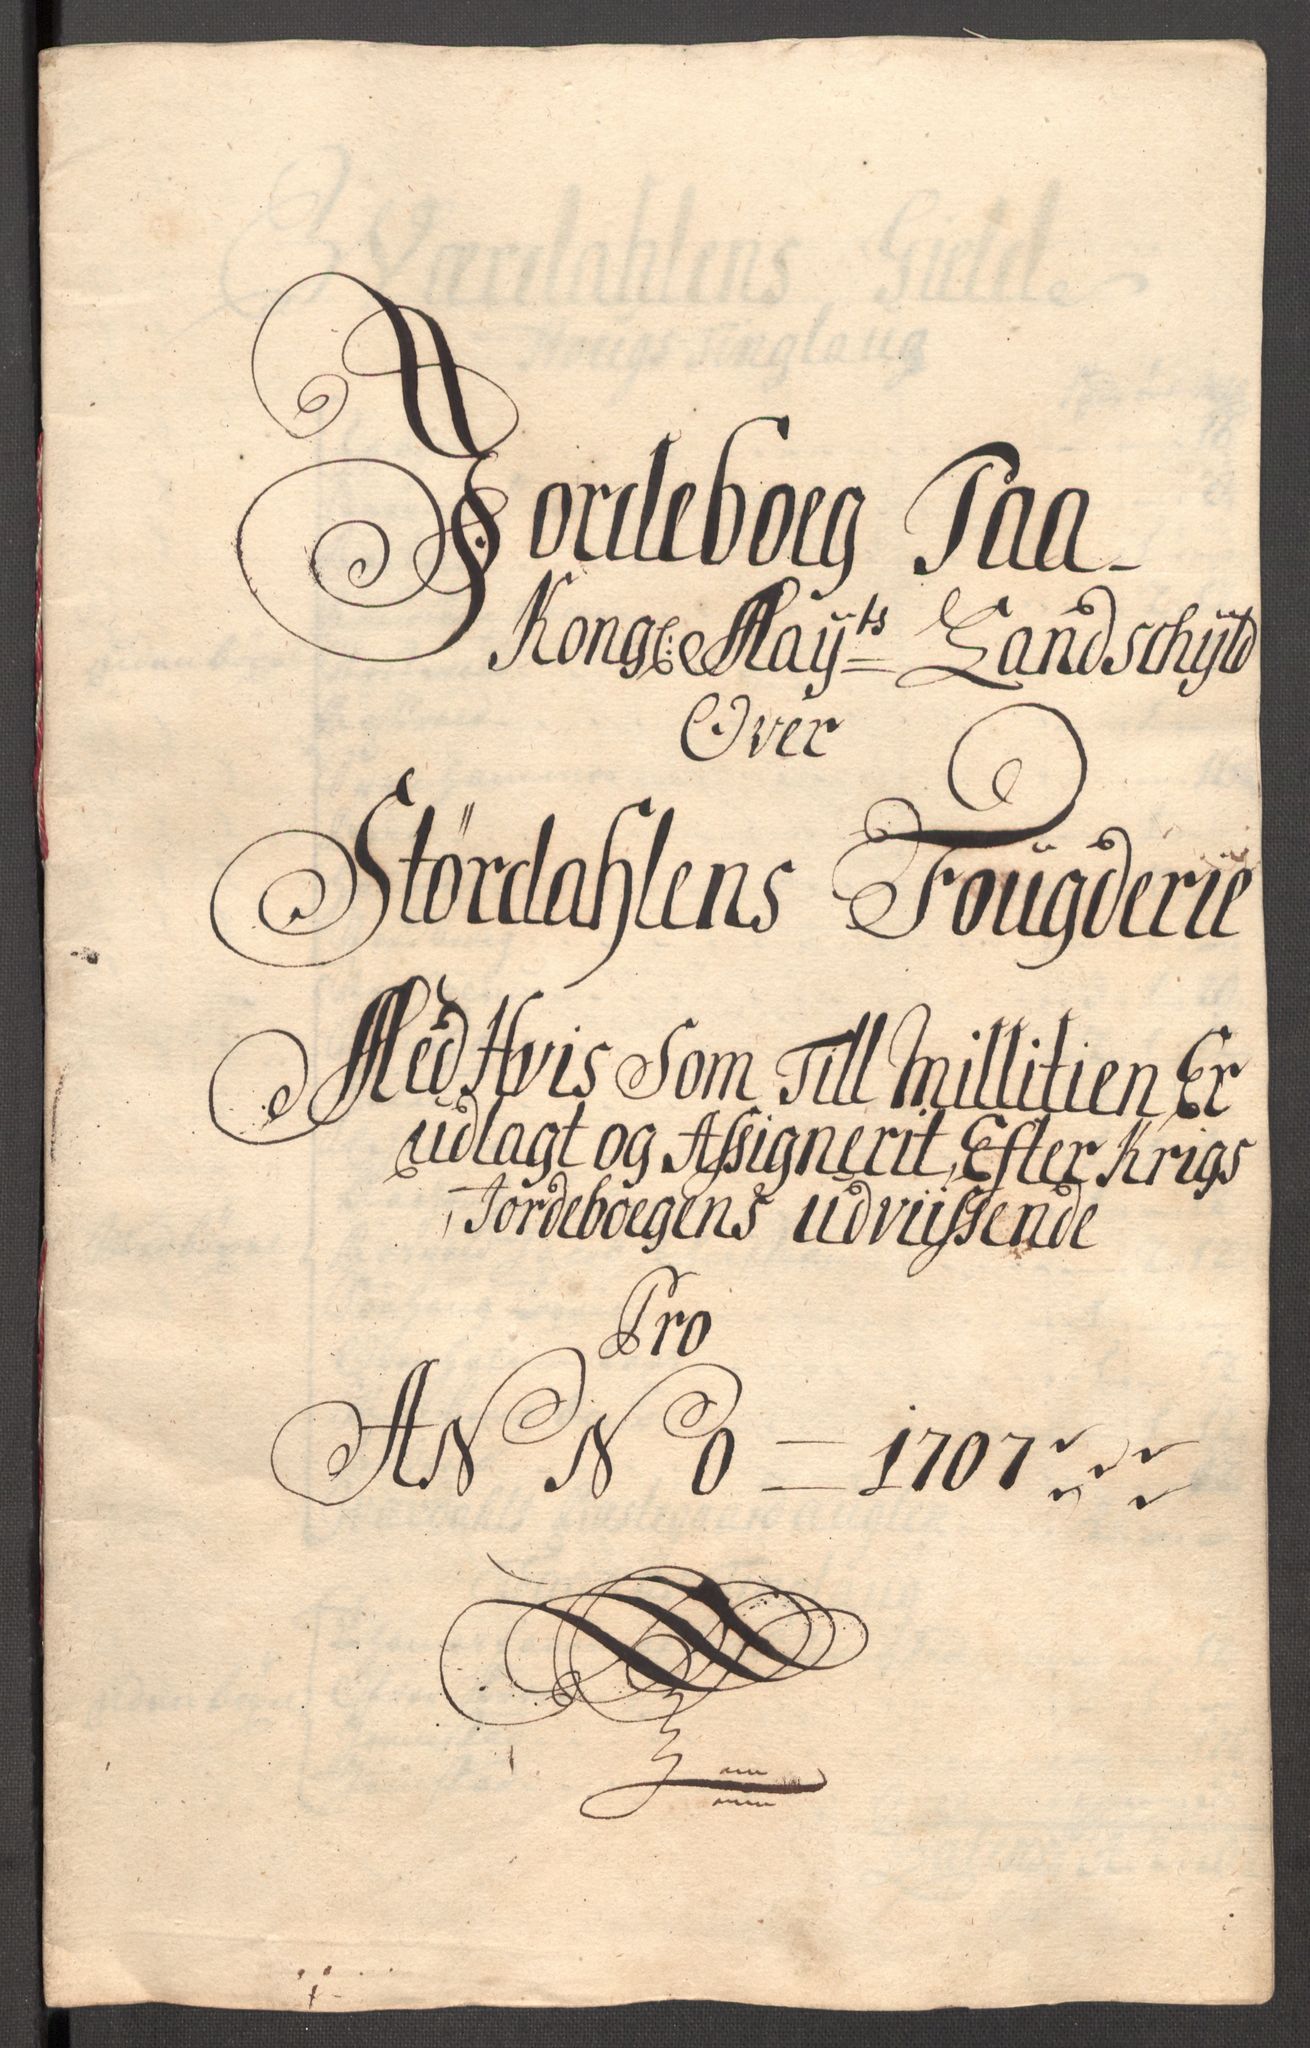 Jordeboeg Paa
Kongl: Mayts Landschÿld
Over
Stördahlens Fougderie
Med Hvis Som Till Millitien Er
udlagt og Assignerit, Efter Krigs
Jordeboegens udviissende
Pro
ANNO = 1707